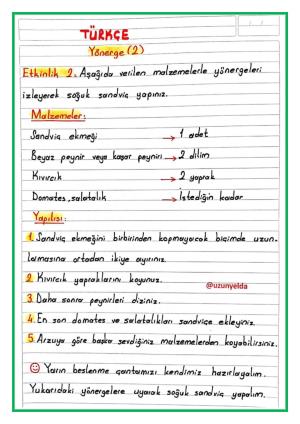 TÜRKÇE
Yönerge (2)
Etkinlik 2. Aşağıda verilen malzemelerle yönergeleri
izleyerek soğuk sandviç yapınız.
Malzemeler:
Sandviç ekmeği → 1 adet
Beyaz peynir veya kaşar peyniri → 2 dilim
Kıvırcık → 2 yaprak
Domates, salatalık → İstediğin kadar
Yapılışı:
1. Sandviç ekmeğini birbirinden kopmayacak biçimde uzun-
lamasına ortadan ikiye ayırınız.
2. Kıvırcık yapraklarını koyunuz.
@uzunyelda
3. Daha sonra peynirleri diziniz.
4. En son domates ve salatalıkları sandviçe ekleyiniz.
5. Arzuya göre başka sevdiğiniz malzemelerden koyabilirsiniz.
☺ Yarın beslenme çantamızı kendimiz hazırlayalım.
Yukarıdaki yönergelere uyarak soğuk sandviç yapalım.